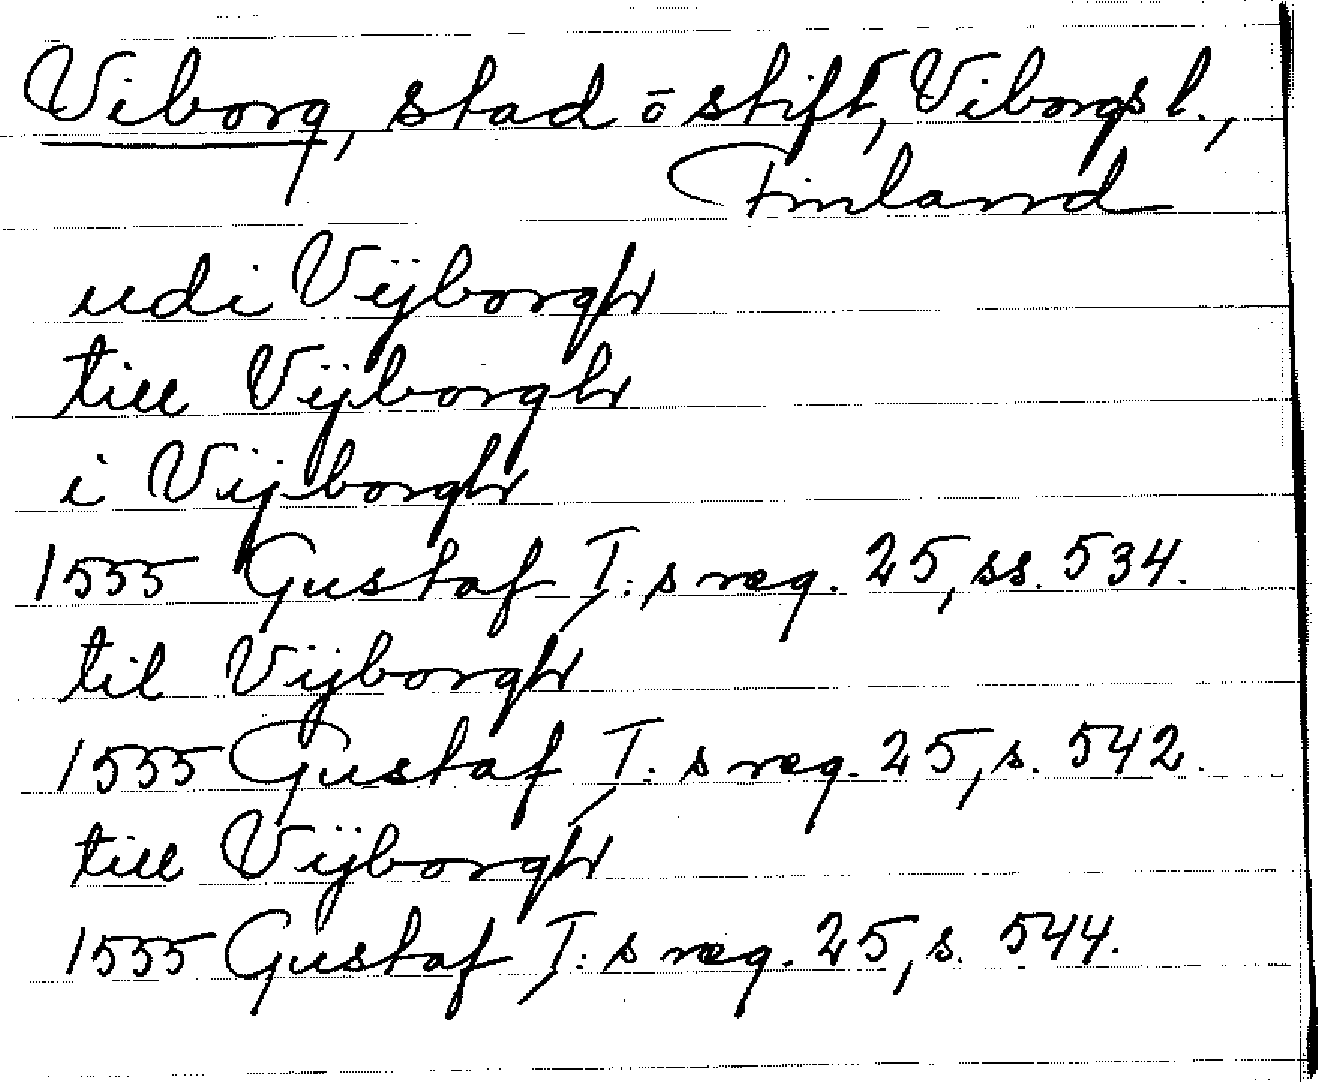 Viborg, stad o stift, Viborgs l.,
Finland
udi Vijborgh
till Vijborgh
i Vijborgh
1555 Gustaf I:s reg. 25, ss. 534.
til Vijborgh
1555 Gustaf I:s reg. 25, s. 542.
till Vijborgh
1555 Gustaf I:s reg. 25, s. 544.